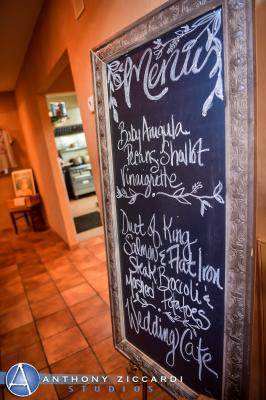 Menu
Baby Arugula
Peeling Shallot
Vinaigrette
Duet of King
Salmon & Flat Iron
Steak Broccoli &
Mashed Potatoes
Wedding Cake
© ANTHONY ZICCARDI
STUDIOS